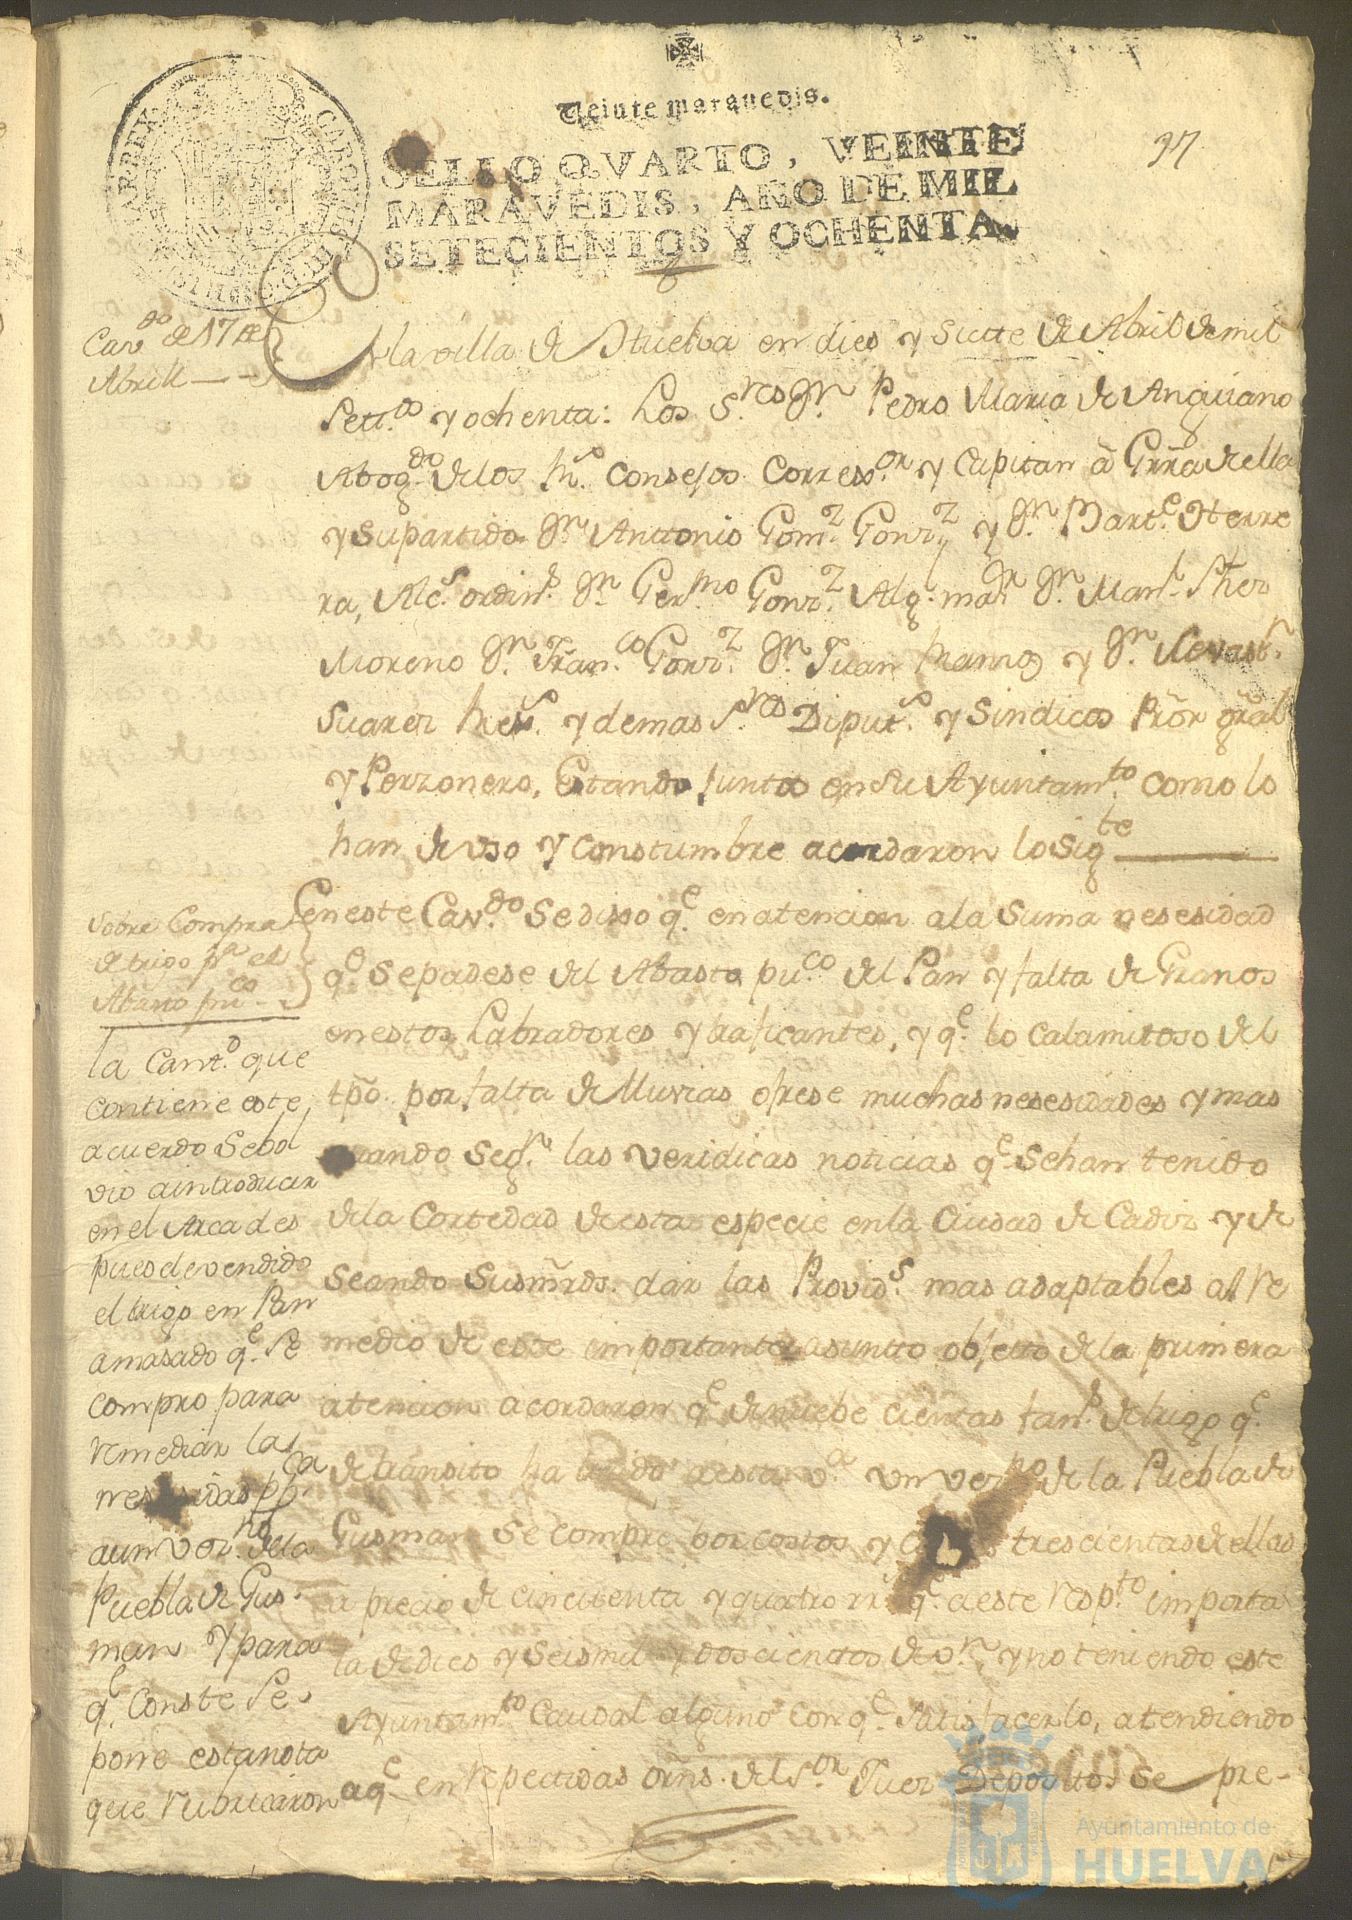 Veinte maravedis.
SELLO QVARTO, VEINTE
MARAVEDIS, AÑO DE MIL
SETECIENTOS Y OCHENTA.
97
Cavdo de 17 de
Abrill
la villa de Huelva en dies y siette de Abril de mil
Settos y ochenta: Los Sres Dn Pedro Maria de Anguiano
Abogdo de los Rs Consejos Corressor y Capitan â Grrâ de ella
y su partido Dn Antonio Gomz Gonzz y Dn Barte Herre
ra, Alcs ordins Dn Germo Gonzz Alg. mayr Dn Manl Sther
Moreno Dn Franco Gonzz Dn Juan Ramos y Dn Sevastn
Suarez Rexs y demas Sres Diputs y Sindicos Prôr grâl
y Perzonero, Estando juntos en su Ayuntamto como lo
han de uso y constumbre acordaron lo Sigte
Sobre Compra
de trigo pa el
Abasto puco
en este Cavdo Se dixo qe en atencion a la Suma nesesidad
qe Se padese del Abasto puco del Pan y falta de Granos
en estos Labradores y traficantes, y qe lo calamitoso del
tpô. por falta de lluvias ofrese muchas nesesidades y mas
quando Segn las veridicas noticias qe Se han tenido
de la Cortedad de esta especie en la Ciudad de Cadiz y de
Seando Susmrds. dar las Provids mas adaptables al re
medio de este importante asunto objetto de la primera
atencion acordaron qe de nuebe cientas fans de trigo qe
de transito ha traido a esta va un vezno de la Puebla de
Gusman Se compre por costos y trescientas de ellas
a precio de cincuenta y quatro rrs qe a este respto importa
la de dies y Seis mil y doscientos de vn, y no teniendo este
Ayuntamto Caudal alguno con qe Satisfacerlo, atendiendo
a qe en repectidas orns. del Sor Juez Depositos se pre-
la Cantd que
contiene este
acuerdo Sebol
vio a introducir
en el Arca des
pues de vendido
el trigo en Pan
amasado qe Se
compro para
remediar las
aun vezno de la
Puebla de Gus-
man y para
qe Conste Se
pone esta nota
que rubricaron
Ayuntamiento de
HUELVA